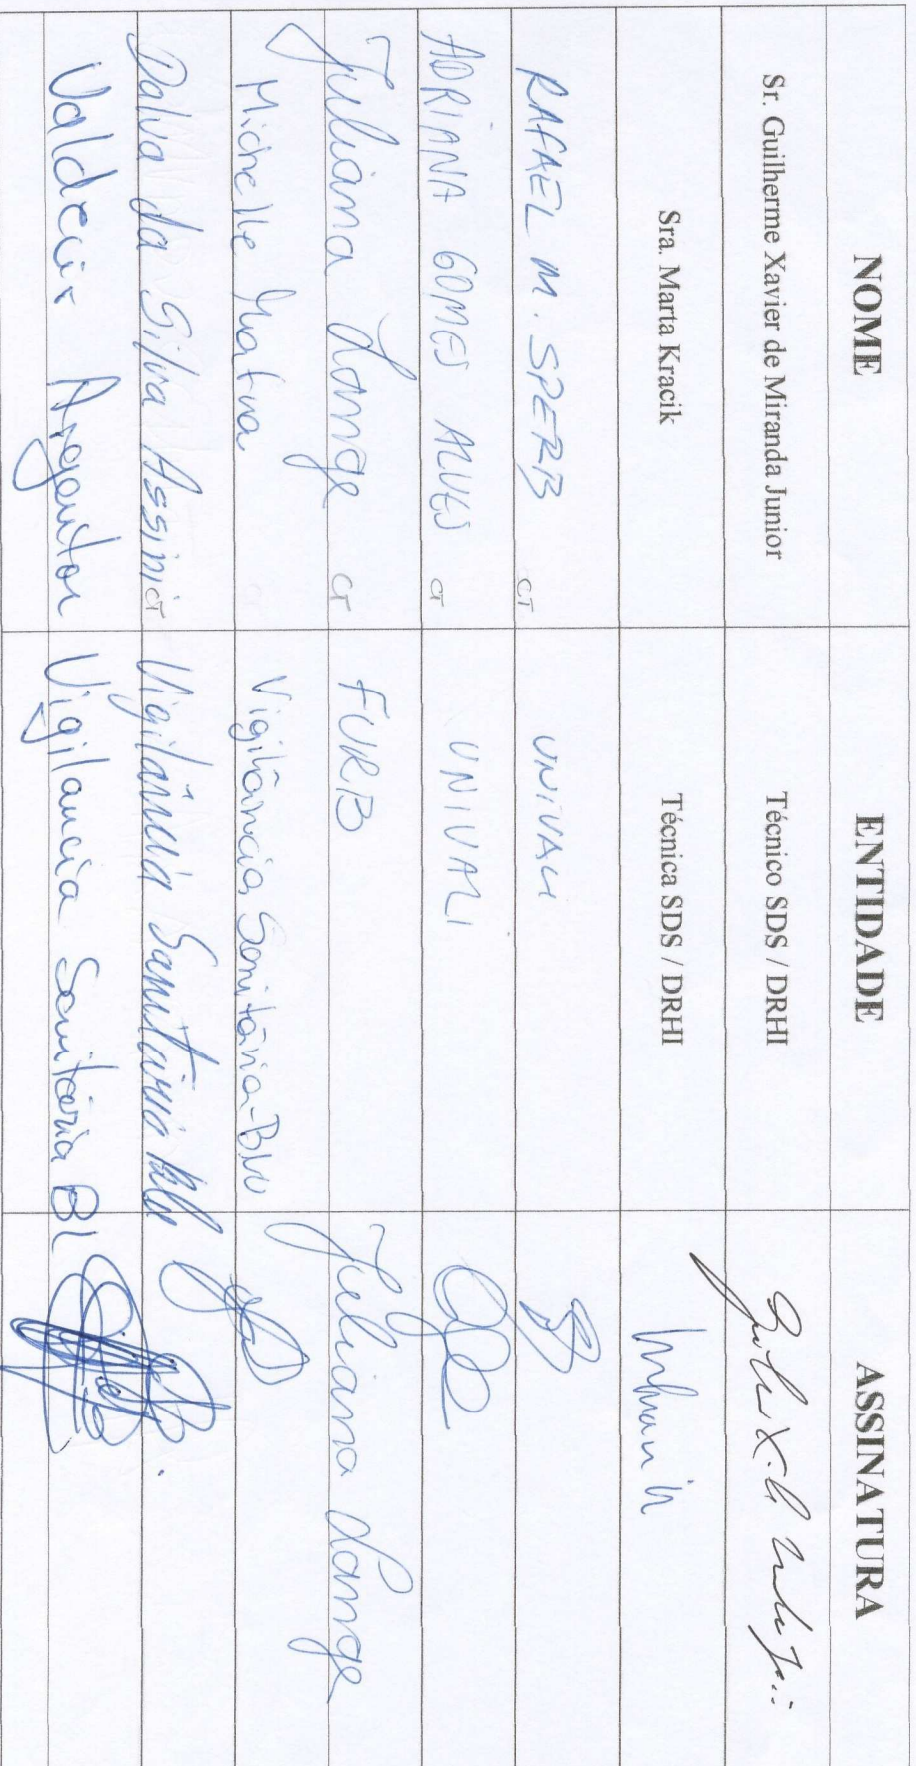 NOME ENTIDADE ASSINATURA
Sr. Guilherme Xavier de Miranda Junior Técnico SDS / DRHI
Sra. Marta Kracik Técnica SDS / DRHI
RAFAEL M. SPERB CT UNIVALI
ADRIANA GOMES ALVES CT UNIVALI
Juliana Lange CT FURB Juliana Lange
Michelle Vigilância Sanitária-BNU
Dalva da Silva Assini CT Vigilância Sanitária
Valdecir Vigilancia Sanitária BL